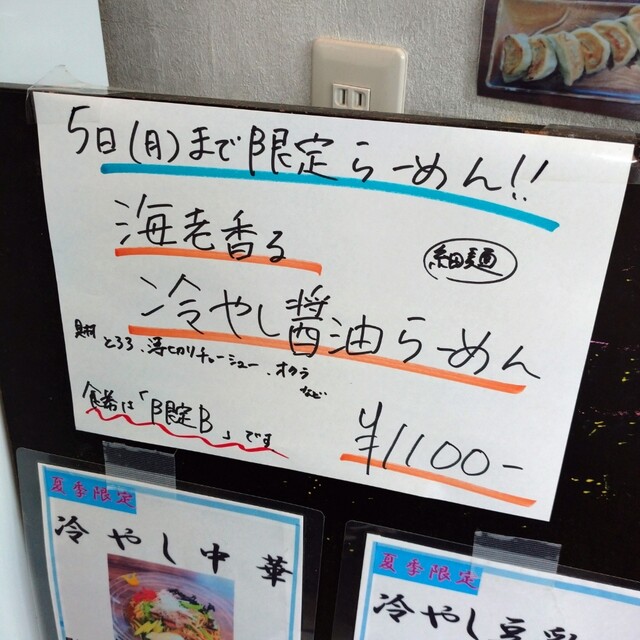 5日(月)まで限定らーめん!!
海老香る
細麺
冷やし醤油らーめん
具材 とろろ、薄切りチャーシュー、オクラ
など
食券は「限定B」です
¥1100-
夏季限定
冷やし中華
夏季限定
冷やし豆乳